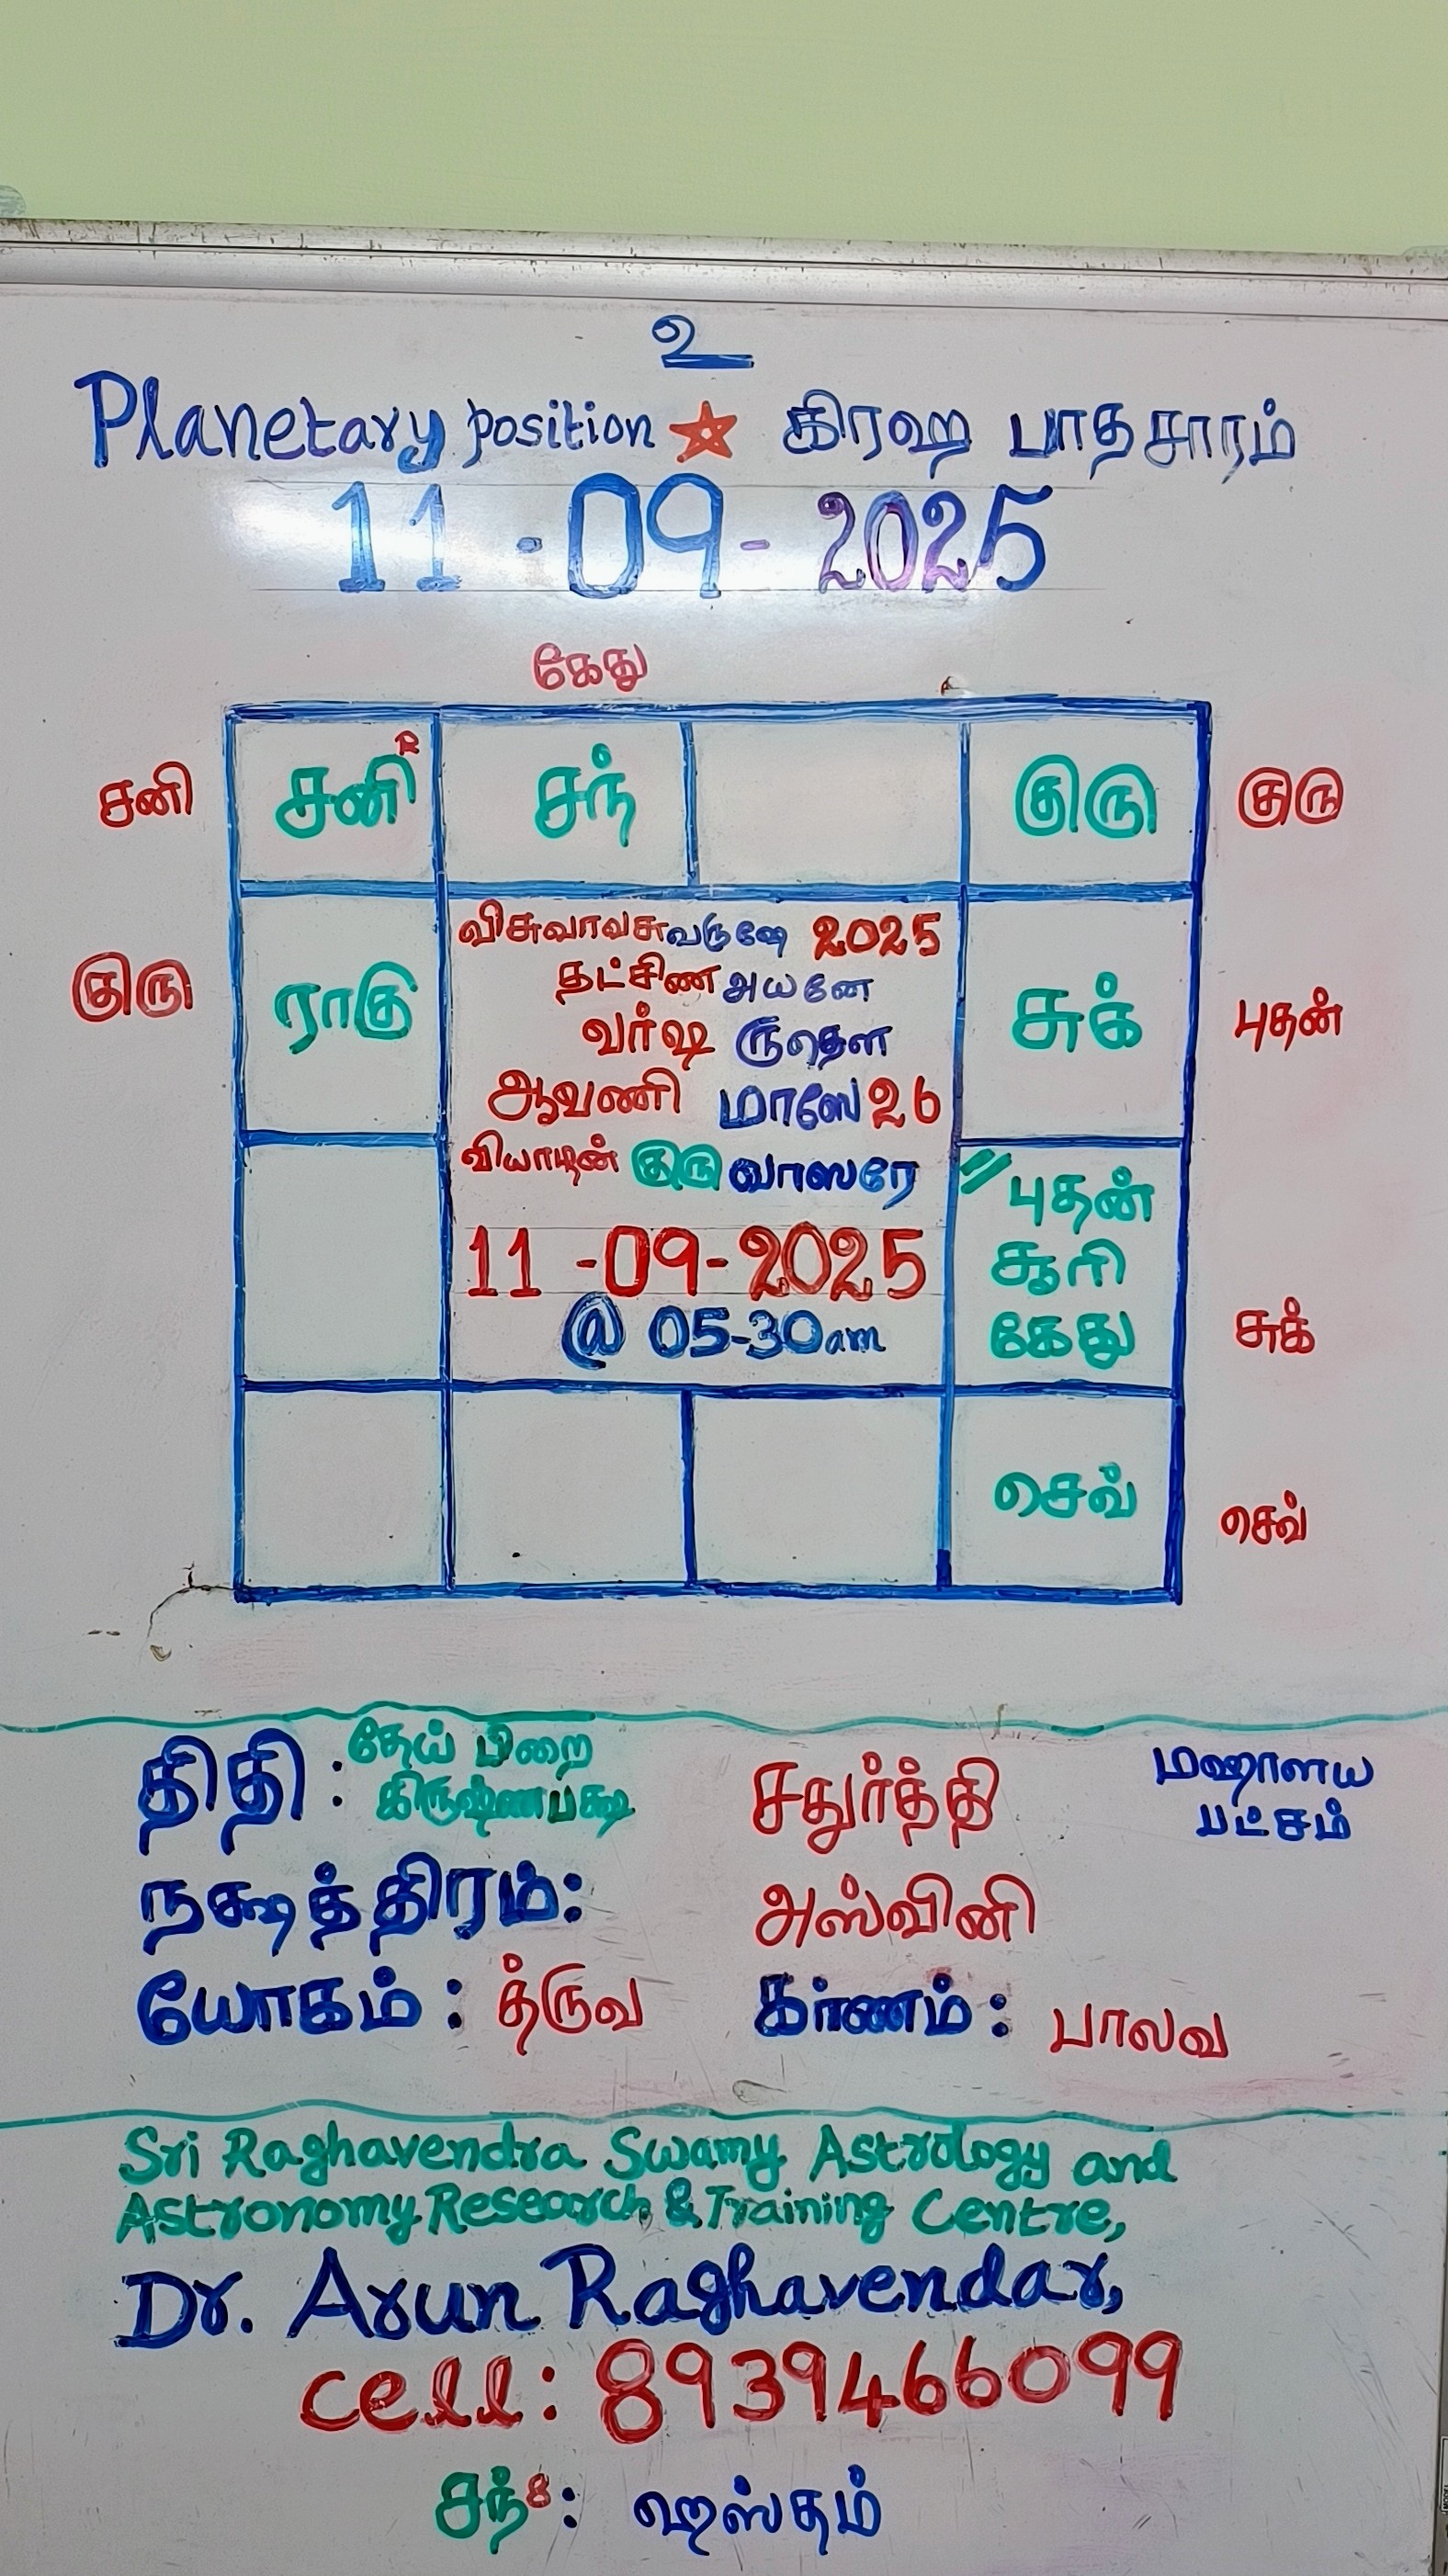 உ
Planetary position ☆ கிரஹ பாதசாரம்
11-09-2025
கேது
சனி சனி R சந் குரு குரு
விசுவாவசுவருஷே 2025
தட்சிண அயனே
குரு ராகு வர்ஷ ருதௌ சுக் புதன்
ஆவணி மாஸே 26
வியாழன் குரு வாஸரே
11-09-2025
@ 05-30am
புதன்
சூரி
கேது சுக்
செவ் செவ்
திதி : தேய் பிறை
கிருஷ்ணபக்ஷ சதுர்த்தி மஹாளய
பட்சம்
நக்ஷத்திரம்: அஸ்வினி
யோகம் : த்ருவ கர்ணம் : பாலவ
Sri Raghavendra Swamy Astrology and
Astronomy Research & Training Centre,
Dr. Arun Raghavendar,
cell: 8939466099
சந்8: ஹஸ்தம்